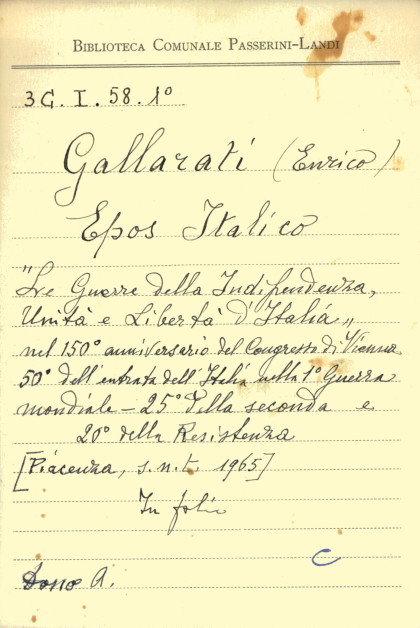 BIBLIOTECA COMUNALE PASSERINI-LANDI
3G. I. 58. 1°
Gallarati (Enrico)
Epos Italico
"Le Guerre della Indipendenza,
Unità e Libertà d'Italia"
nel 150° anniversario del Congresso di Vienna
50° dell'entrata dell'Italia nella 1° Guerra
mondiale - 25° della seconda e
20° della Resistenza
[Piacenza, s.n.t. 1965]
In folio
C
Dono A.